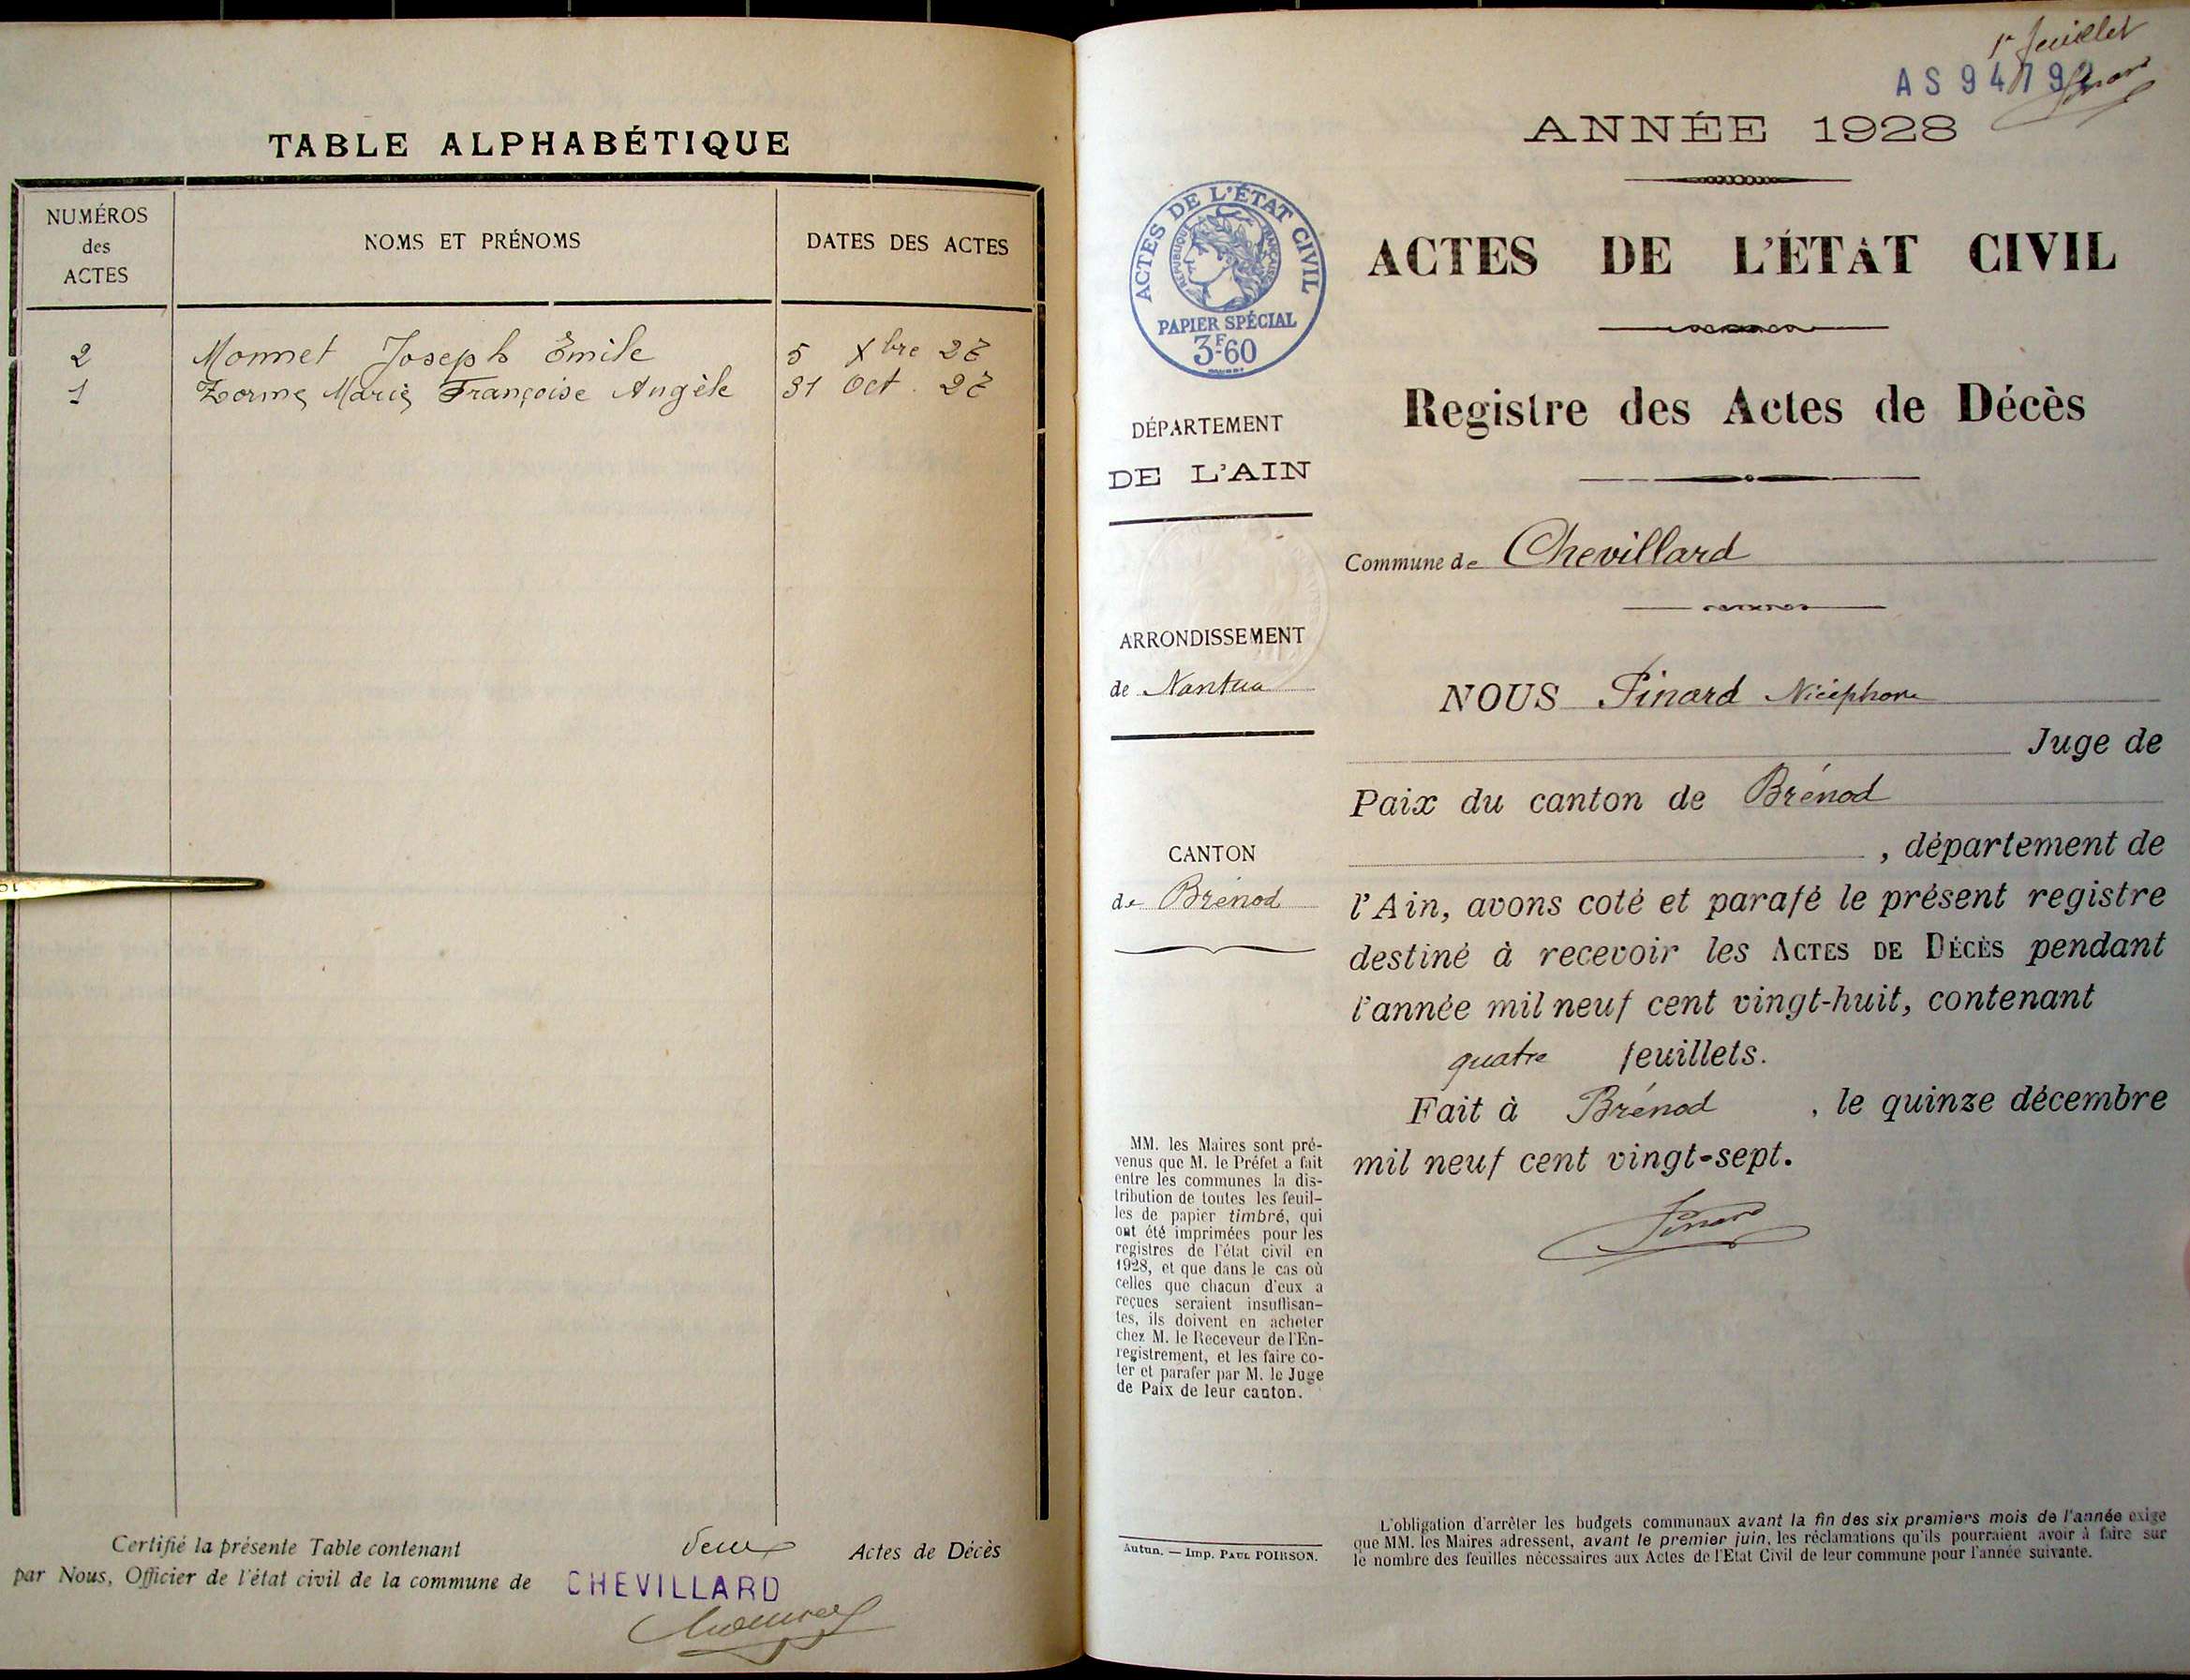 TABLE ALPHABÉTIQUE
NUMÉROS
des
ACTES
NOMS ET PRÉNOMS
DATES DES ACTES
2 Monnet Joseph Émile 5 Xbre 27
1 Marie Françoise Angèle 31 Oct. 27
Certifié la présente Table contenant deux Actes de Décès
par Nous, Officier de l'état civil de la commune de CHEVILLARD
1er feuillet
AS 9479
Pinard
ANNÉE 1928
ACTES DE L'ÉTAT CIVIL
RÉPUBLIQUE FRANÇAISE
PAPIER SPÉCIAL
3F.60
ACTES DE L'ÉTAT CIVIL
Registre des Actes de Décès
DÉPARTEMENT
DE L'AIN
Commune de Chevillard
ARRONDISSEMENT
de Nantua
CANTON
de Brénod
NOUS Pinard Nicéphore
Juge de
Paix du canton de Brénod
, département de
l'Ain, avons coté et parafé le présent registre
destiné à recevoir les ACTES DE DÉCÈS pendant
l'année mil neuf cent vingt-huit, contenant
quatre feuillets.
Fait à Brénod , le quinze décembre
mil neuf cent vingt-sept.
Pinard
MM. les Maires sont pré-
venus que M. le Préfet a fait
entre les communes la dis-
tribution de toutes les feuil-
les de papier timbré, qui
ont été imprimées pour les
registres de l'état civil en
1928, et que dans le cas où
celles que chacun d'eux a
reçues seraient insuffisan-
tes, ils doivent en acheter
chez M. le Receveur de l'En-
registrement, et les faire co-
ter et parafer par M. le Juge
de Paix de leur canton.
Autun. — Imp. PAUL POIRSON.
L'obligation d'arrêter les budgets communaux avant la fin des six premiers mois de l'année exige
que MM. les Maires adressent, avant le premier juin, les réclamations qu'ils pourraient avoir à faire sur
le nombre des feuilles nécessaires aux Actes de l'Etat Civil de leur commune pour l'année suivante.